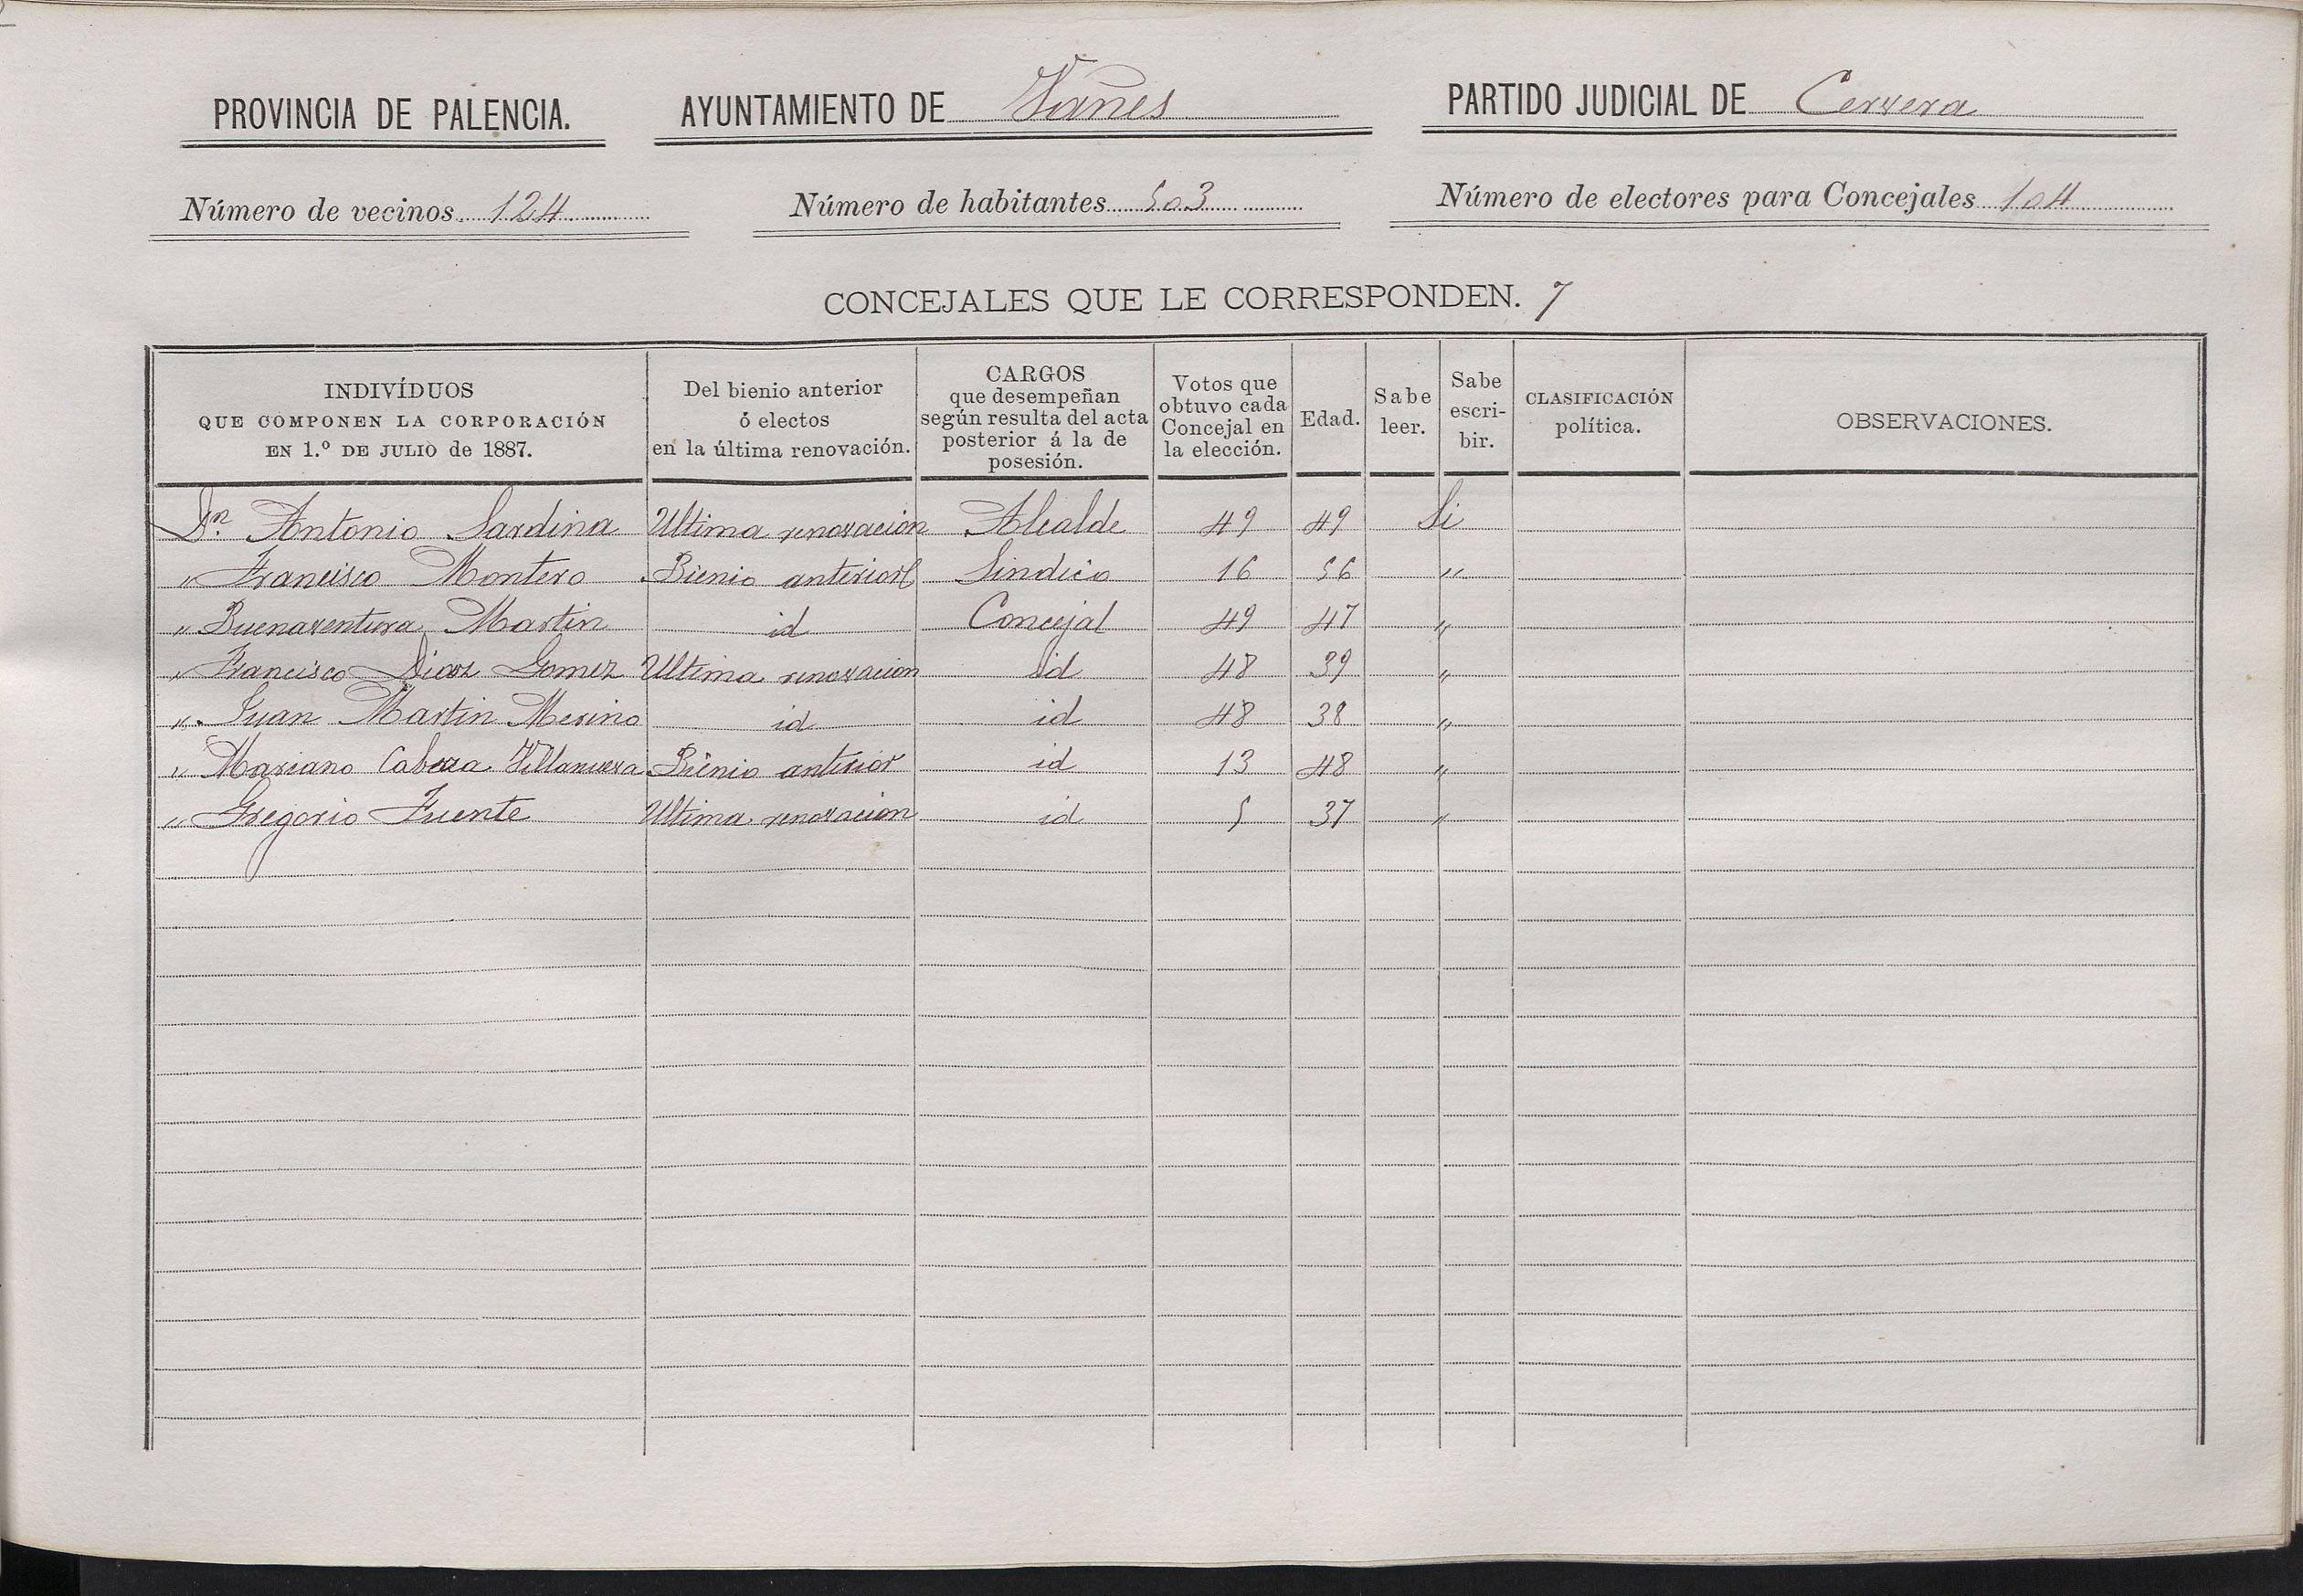 PROVINCIA DE PALENCIA. AYUNTAMIENTO DE Vañes PARTIDO JUDICIAL DE Cervera
Número de vecinos 124 Número de habitantes 503 Número de electores para Concejales 104
CONCEJALES QUE LE CORRESPONDEN. 7
INDIVÍDUOS
QUE COMPONEN LA CORPORACIÓN
EN 1.º DE JULIO de 1887.
Del bienio anterior
ó electos
en la última renovación.
CARGOS
que desempeñan
según resulta del acta
posterior á la de
posesión.
Votos que
obtuvo cada
Concejal en
la elección.
Edad.
Sabe
leer.
Sabe
escri-
bir.
CLASIFICACIÓN
política.
OBSERVACIONES.
Dn. Antonio Sardina Ultima renovacion Alcalde 49 49 Si
" Francisco Montero Bienio anterior Sindico 16 56 "
" Buenaventura Martin id Concejal 49 47 "
" Francisco Diez Gomez Ultima renovacion id 48 39 "
" Juan Martin Merino id id 48 38 "
" Mariano Cabeza Villanueva Bienio anterior id 13 48 "
" Gregorio Fuente Ultima renovacion id 5 37 "